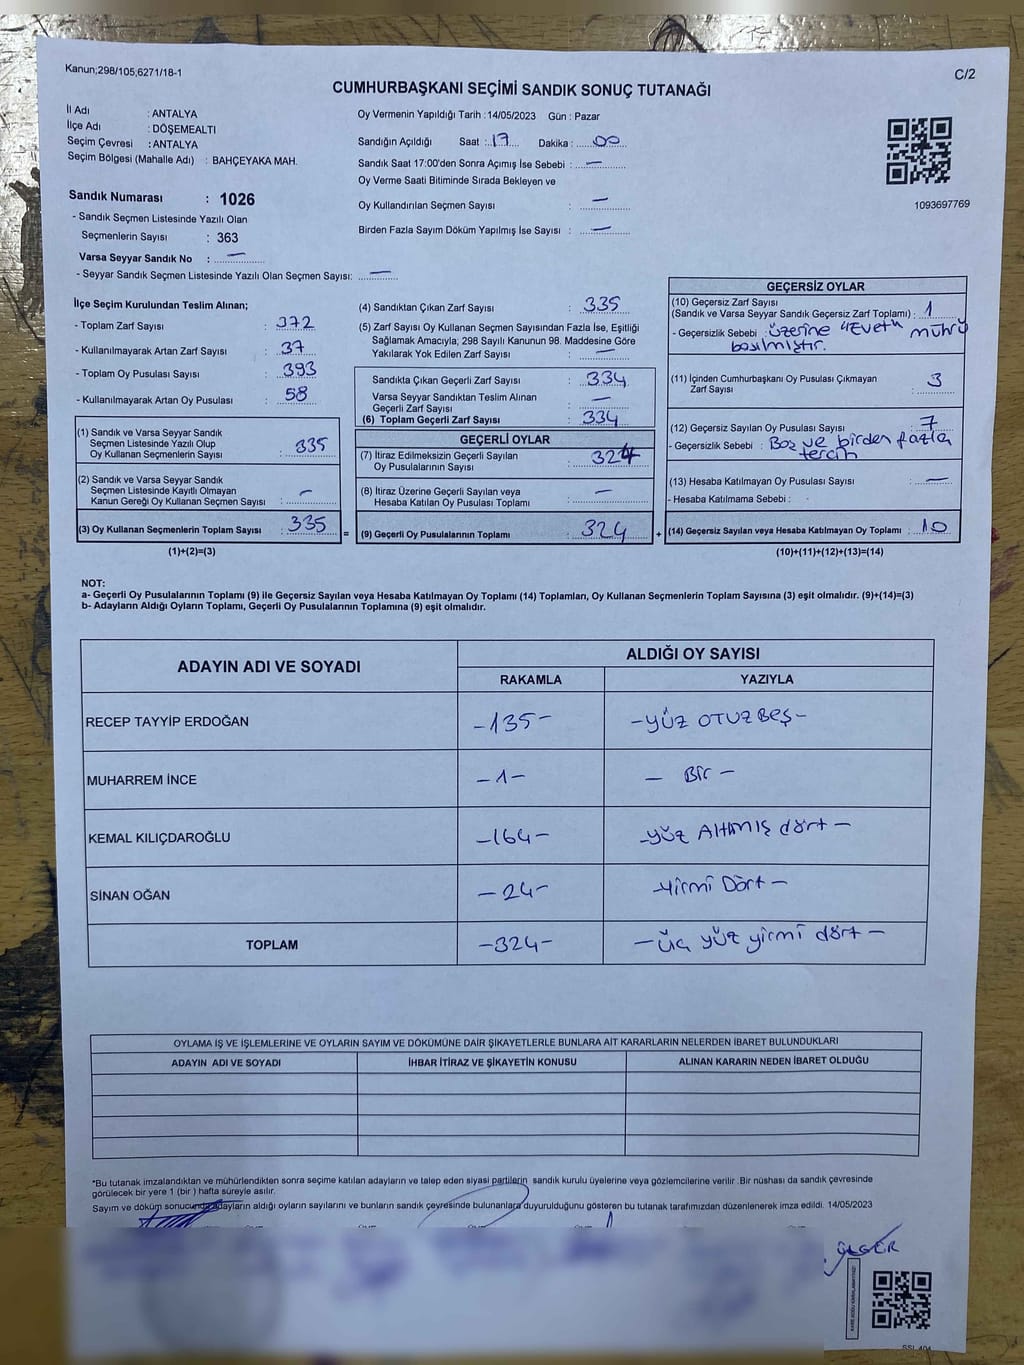 Kanun;298/105;6271/18-1
C/2
CUMHURBAŞKANI SEÇİMİ SANDIK SONUÇ TUTANAĞI
İl Adı : ANTALYA
İlçe Adı : DÖŞEMEALTI
Seçim Çevresi : ANTALYA
Seçim Bölgesi (Mahalle Adı) : BAHÇEYAKA MAH.
Oy Vermenin Yapıldığı Tarih : 14/05/2023 Gün : Pazar
Sandığın Açıldığı Saat : 17 Dakika : 00
Sandık Saat 17:00'den Sonra Açımış İse Sebebi : —
Oy Verme Saati Bitiminde Sırada Bekleyen ve
Oy Kullandırılan Seçmen Sayısı : —
Birden Fazla Sayım Döküm Yapılmış İse Sayısı : —
1093697769
Sandık Numarası : 1026
- Sandık Seçmen Listesinde Yazılı Olan
Seçmenlerin Sayısı : 363
Varsa Seyyar Sandık No : —
- Seyyar Sandık Seçmen Listesinde Yazılı Olan Seçmen Sayısı: —
İlçe Seçim Kurulundan Teslim Alınan;
- Toplam Zarf Sayısı : 372
- Kullanılmayarak Artan Zarf Sayısı : 37
- Toplam Oy Pusulası Sayısı : 393
- Kullanılmayarak Artan Oy Pusulası : 58
(1) Sandık ve Varsa Seyyar Sandık
Seçmen Listesinde Yazılı Olup
Oy Kullanan Seçmenlerin Sayısı : 335
(2) Sandık ve Varsa Seyyar Sandık
Seçmen Listesinde Kayıtlı Olmayan
Kanun Gereği Oy Kullanan Seçmen Sayısı : —
(3) Oy Kullanan Seçmenlerin Toplam Sayısı : 335 =
(1)+(2)=(3)
(4) Sandıktan Çıkan Zarf Sayısı : 335
(5) Zarf Sayısı Oy Kullanan Seçmen Sayısından Fazla İse, Eşitliği
Sağlamak Amacıyla; 298 Sayılı Kanunun 98. Maddesine Göre
Yakılarak Yok Edilen Zarf Sayısı : —
Sandıkta Çıkan Geçerli Zarf Sayısı : 334
Varsa Seyyar Sandıktan Teslim Alınan
Geçerli Zarf Sayısı : —
(6) Toplam Geçerli Zarf Sayısı : 334
GEÇERLİ OYLAR
(7) İtiraz Edilmeksizin Geçerli Sayılan
Oy Pusulalarının Sayısı : 324
(8) İtiraz Üzerine Geçerli Sayılan veya
Hesaba Katılan Oy Pusulası Toplamı : —
(9) Geçerli Oy Pusulalarının Toplamı : 324 +
GEÇERSİZ OYLAR
(10) Geçersiz Zarf Sayısı
(Sandık ve Varsa Seyyar Sandık Geçersiz Zarf Toplamı) : 1
- Geçersizlik Sebebi : üzerine "Evet" mührü
basılmıştır.
(11) İçinden Cumhurbaşkanı Oy Pusulası Çıkmayan
Zarf Sayısı : 3
(12) Geçersiz Sayılan Oy Pusulası Sayısı : 7
- Geçersizlik Sebebi : Boş ve birden fazla
tercih
(13) Hesaba Katılmayan Oy Pusulası Sayısı : —
- Hesaba Katılmama Sebebi :
(14) Geçersiz Sayılan veya Hesaba Katılmayan Oy Toplamı : 10
(10)+(11)+(12)+(13)=(14)
NOT:
a- Geçerli Oy Pusulalarının Toplamı (9) ile Geçersiz Sayılan veya Hesaba Katılmayan Oy Toplamı (14) Toplamları, Oy Kullanan Seçmenlerin Toplam Sayısına (3) eşit olmalıdır. (9)+(14)=(3)
b- Adayların Aldığı Oyların Toplamı, Geçerli Oy Pusulalarının Toplamına (9) eşit olmalıdır.
ADAYIN ADI VE SOYADI
ALDIĞI OY SAYISI
RAKAMLA YAZIYLA
RECEP TAYYİP ERDOĞAN -135- -yüz otuz beş-
MUHARREM İNCE -1- - Bir -
KEMAL KILIÇDAROĞLU -164- -yüz Altmış dört -
SİNAN OĞAN -24- -yirmi Dört -
TOPLAM -324- -üç yüz yirmi dört -
OYLAMA İŞ VE İŞLEMLERİNE VE OYLARIN SAYIM VE DÖKÜMÜNE DAİR ŞİKAYETLERLE BUNLARA AİT KARARLARIN NELERDEN İBARET BULUNDUKLARI
ADAYIN ADI VE SOYADI İHBAR İTİRAZ VE ŞİKAYETİN KONUSU ALINAN KARARIN NEDEN İBARET OLDUĞU
*Bu tutanak imzalandıktan ve mühürlendikten sonra seçime katılan adayların ve talep eden siyasi partilerin sandık kurulu üyelerine veya gözlemcilerine verilir .Bir nüshası da sandık çevresinde
görülecek bir yere 1 (bir ) hafta süreyle asılır.
Sayım ve döküm sonucunda adayların aldığı oyların sayılarını ve bunların sandık çevresinde bulunanlara duyurulduğunu gösteren bu tutanak tarafımızdan düzenlenerek imza edildi. 14/05/2023